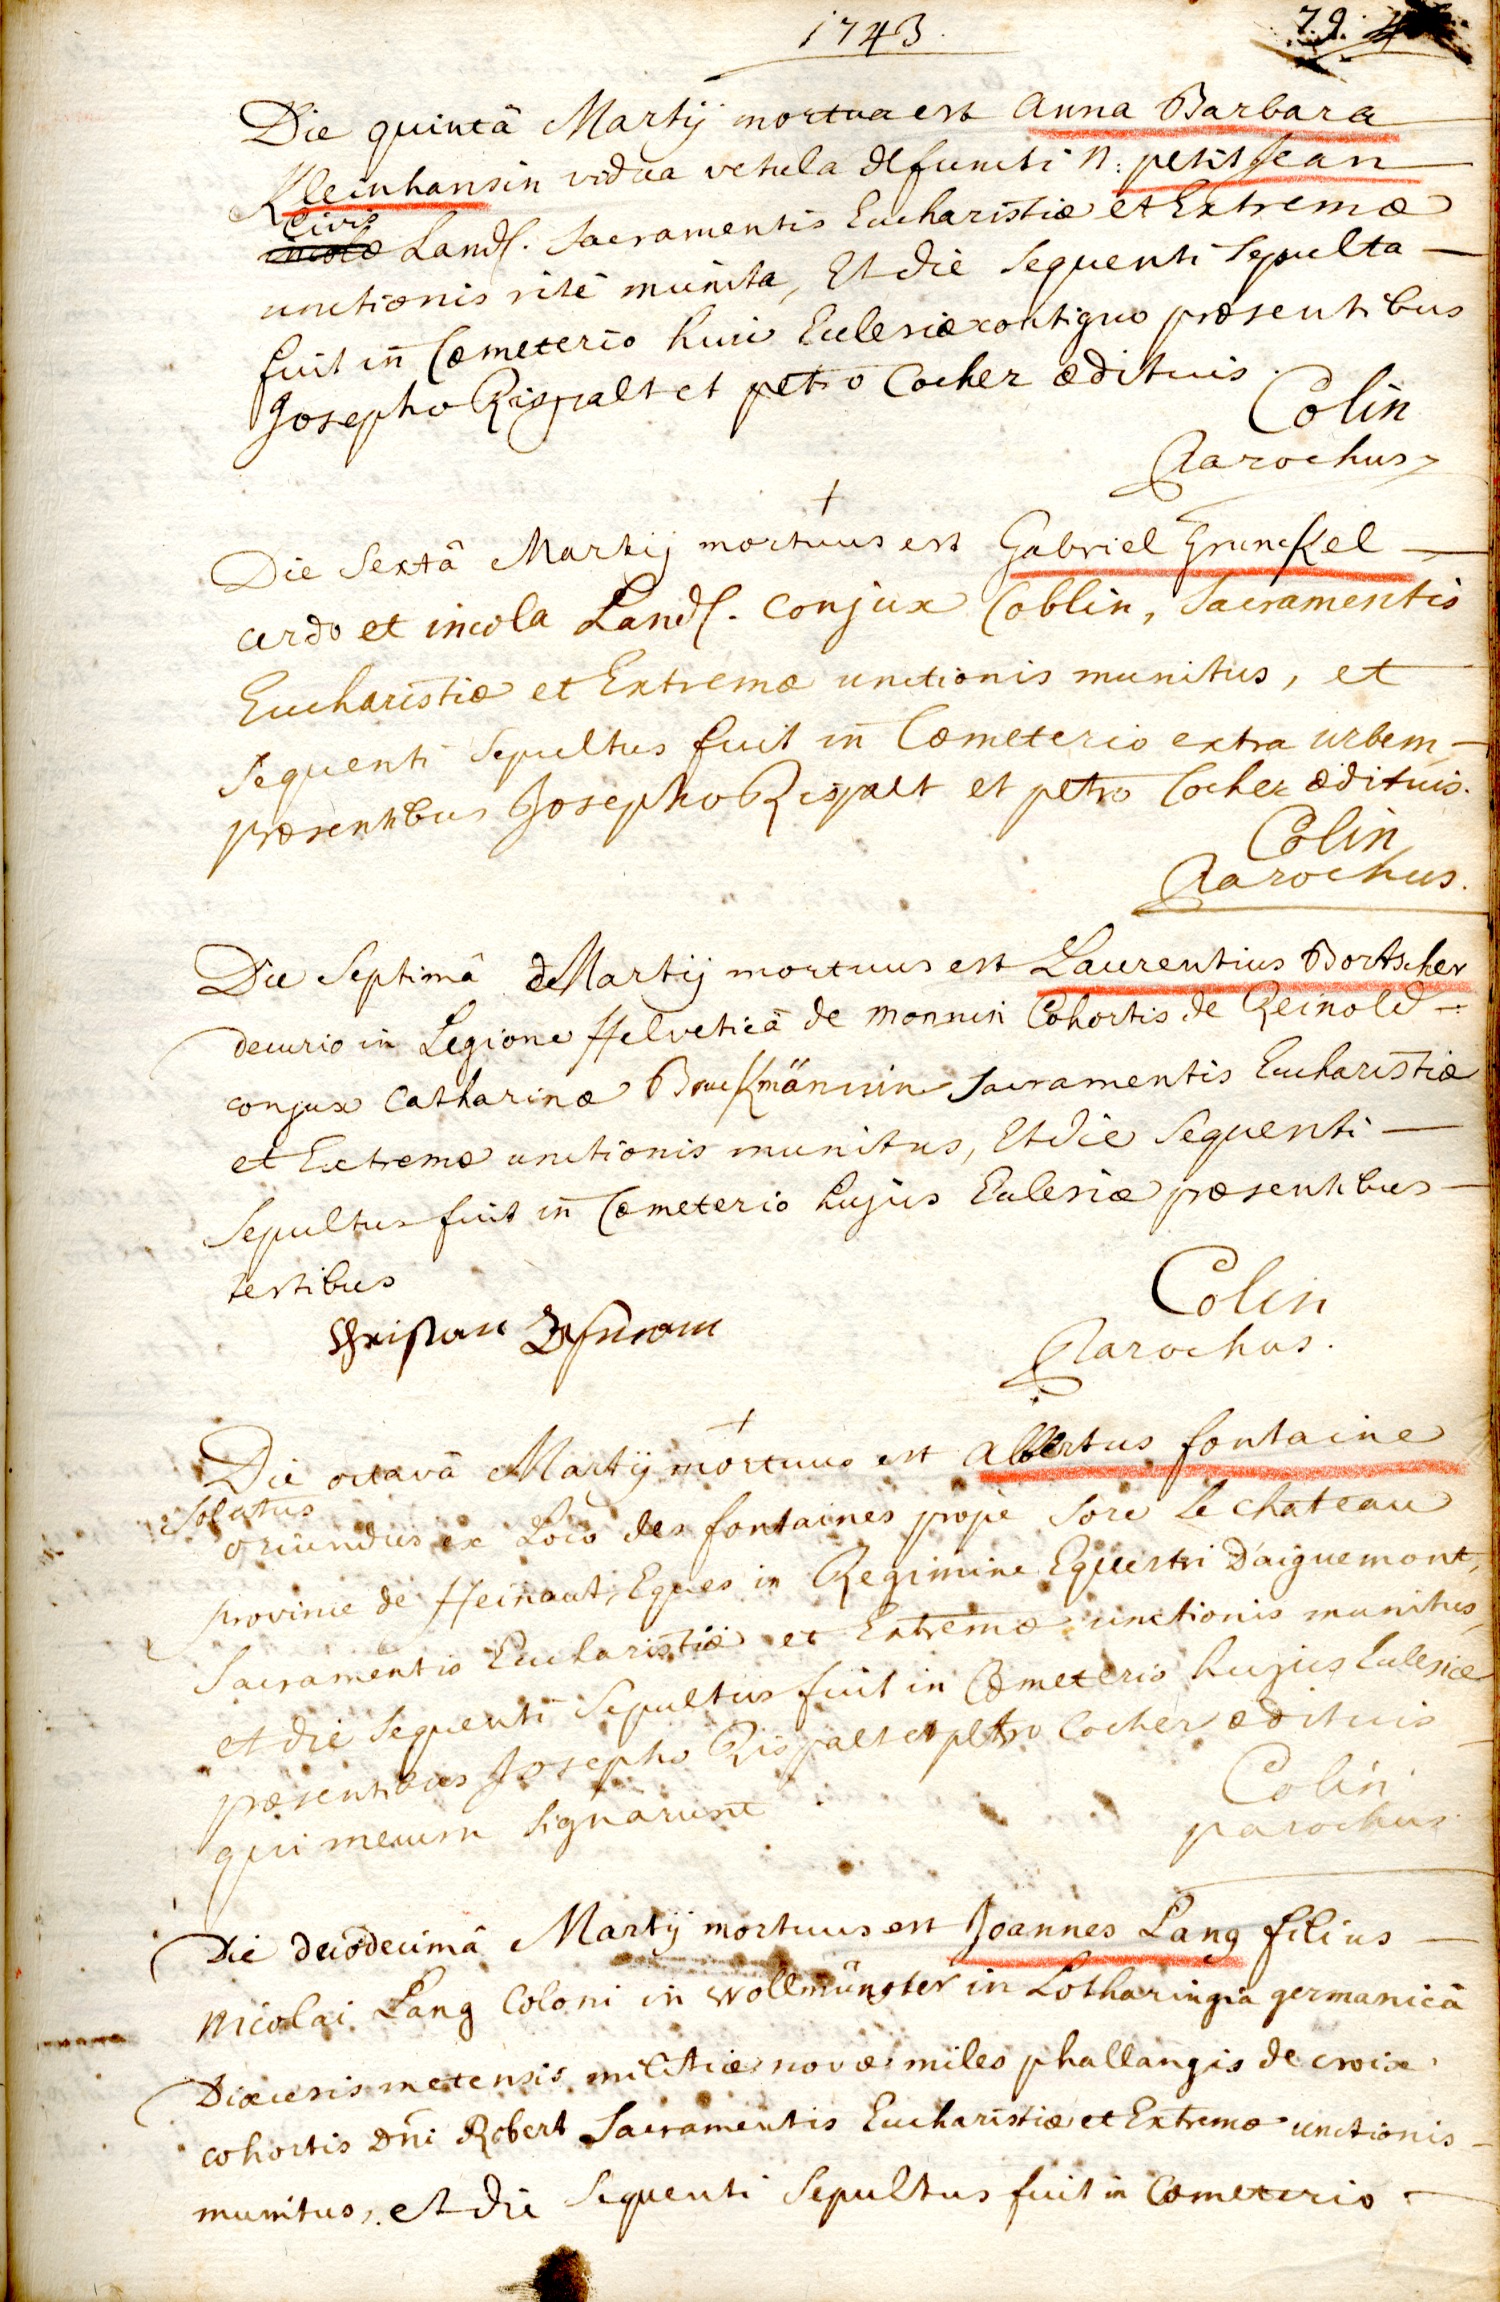 1743.
79.
Die quintâ Martij mortua est Anna Barbara
Kleinhansin vidua vetula defuncti N: petitJean
Civis
incolæ Land. Sacramentis Eucharistiæ et Extremæ
unctionis ritè munita, Et die sequenti Sepulta
fuit in Cœmeterio huic Ecclesiæ contiguo præsentibus
Josepho Rispalt et petro Cocher ædituis.
Colin
Parochus
Die Sextâ Martij mortuus est Gabriel Grunckel
cerdo et incola Land. conjux Coblin, Sacramentis
Eucharistiæ et Extremæ unctionis munitus, et
sequenti Sepultus fuit in Cœmeterio extra urbem
præsentibus Josepho Rispalt et petro Cocher ædituis.
Colin
Parochus.
Die Septimâ Martij mortuus est Laurentius Bortscher
decurio in Legione Helveticâ de monnin Cohortis de Reinold
conjux Catharinæ Bruckmännin Sacramentis Eucharistiæ
et Extremæ unctionis munitus, Et die Sequenti
Sepultus fuit in Cœmeterio hujus Ecclesiæ præsentibus
testibus
Christian
Colin
Parochus.
Die octavâ Martij mortuus est Albertus fontaine
solutus
oriundus ex Loco des fontaines propè Sore Le chateau
provinciæ de Heinaut, Eques in Regimine Equestri D'aiguemont,
Sacramentis Eucharistiæ et Extremæ unctionis munitus,
et die Sequenti Sepultus fuit in Cœmeterio hujus Ecclesiæ
præsentibus Josepho Rispalt et petro Cocher ædituis
qui mecum Signarunt
Colin
parochus
Die duodecimâ Martij mortuus est Joannes Lang filius
Nicolai Lang Coloni in Wollmünster in Lotharingia germanicâ
Diœcesis metensis militiæ novæ miles phallangis de croix
cohortis Dñi Robert Sacramentis Eucharistiæ et Extremæ unctionis
munitus, et die Sequenti Sepultus fuit in Cœmeterio